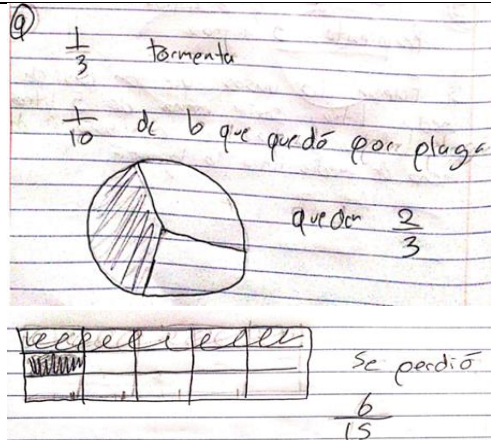 a
1/3 tormenta
1/10 de lo que quedó por plaga
quedan 2/3
Se perdió
6/15